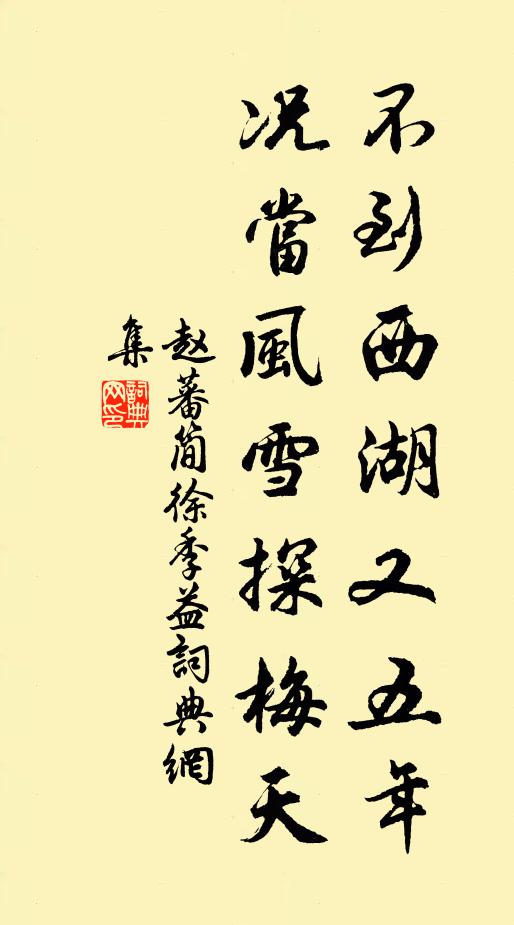 不到西湖又五年
况當風雪探梅天
赵蕃简徐季益詞典網
集
詞典網印